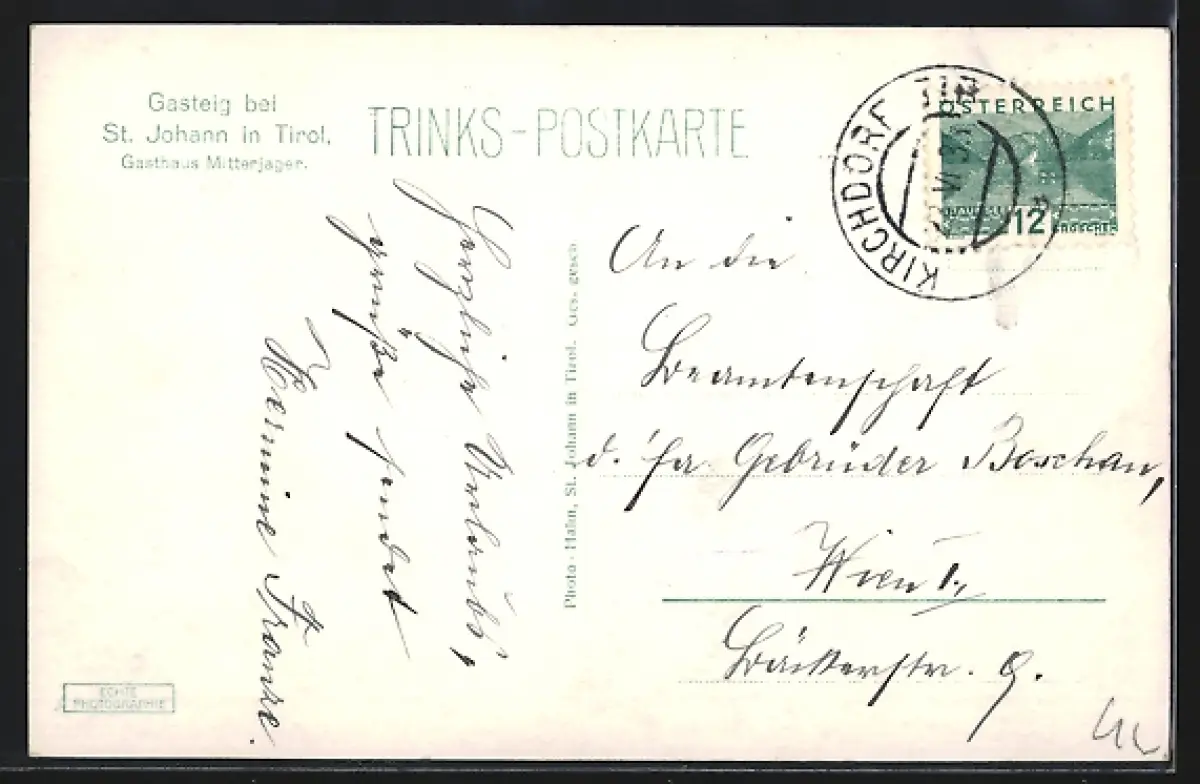 Gasteig bei
St. Johann in Tirol,
Gasthaus Mitterjager.
TRINKS-POSTKARTE
KIRCHDORF TIR
ÖSTERREICH
12 GROSCHEN
Herzliche Urlaubs,
grüße sendet
Hermine Franke.
Photo-Hahn, St. Johann in Tirol. Ges. gesch
An die
Beamtenschaft
d. fa. Gebrüder Boschan,
Wien 1.,
Bäckerstr. 9.
ECHTE
PHOTOGRAPHIE